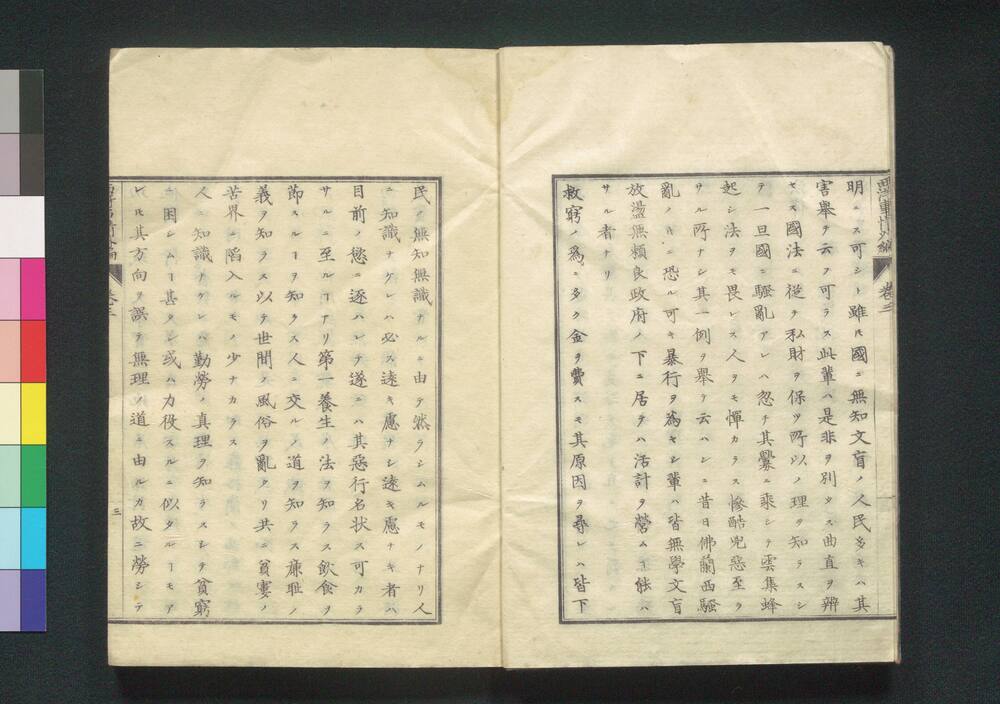 明ニス可シト雖𪜈國ニ無知文盲ノ人民多キハ其
害舉テ云フ可ラス此輩ハ是非ヲ別タス曲直ヲ辨
セス國法ニ從テ私財ヲ保ツ所以ノ理ヲ知ラスシ
テ一旦國ニ騷亂アレハ忽チ其釁ニ乘シテ雲集蜂
起シ法ヲモ畏レス人ヲモ憚カラス慘酷兇惡至ラ
サル所ナシ其一例ヲ舉テ云ハンニ昔日佛蘭西騷
亂ノ時ニ恐ル可キ暴行ヲ為セシ輩ハ皆無學文盲
放盪無頼良政府ノ下ニ居テハ活計ヲ營ムヿ能ハ
サル者ナリ
救窮ノ為ニ多ク金ヲ費スモ其原因ヲ尋レハ皆下
民ノ無知無識ナルニ由テ然ラシムルモノナリ人
ニ知識ナケレハ必ス遠キ慮ナシ遠キ慮ナキ者ハ
目前ノ慾ニ逐ハレテ遂ニハ其惡行名状ス可カラ
サルニ至ルヿアリ第一養生ノ法ヲ知ラス飲食ヲ
節スルヿヲ知ラス人ニ交ルノ道ヲ知ラス廉耻ノ
義ヲ知ラス以テ世間ノ風俗ヲ亂タリ共ニ貧寠ノ
苦界ニ陷入ルモノ少ナカラス
人ニ知識ナケレハ勤勞ノ真理ヲ知ラスシテ貧窮
ニ困シムヿ甚タシ或ハ力役スルニ似タルヿモア
レ𪜈其方向ヲ誤テ無理ノ道ニ由ルカ故ニ勞シテ
卷三
三